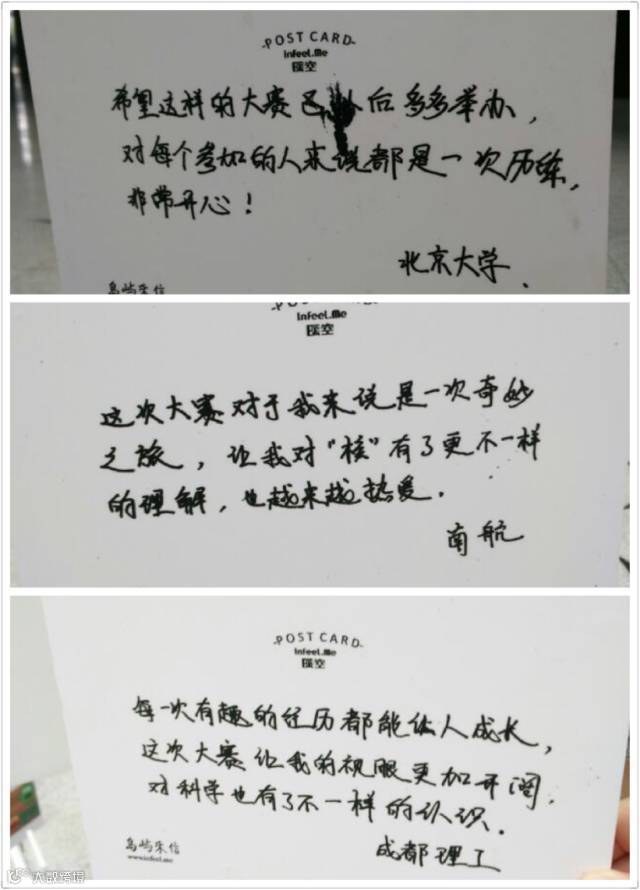 POST CARD
infeel.me
希望这样的大赛 后多多举办,
对每个参加的人来说都是一次历练,
非常开心!
北京大学.
岛屿来信
POST CARD
infeel.me
这次大赛对于我来说是一次奇妙
之旅,让我对“核”有了更不一样
的理解,也越来越热爱.
南航
POST CARD
infeel.me
每一次有趣的经历都能使人成长,
这次大赛让我的视眼更加开阔,
对科学也有了不一样的认识.
成都理工
岛屿来信
www.infeel.me
大数跨境